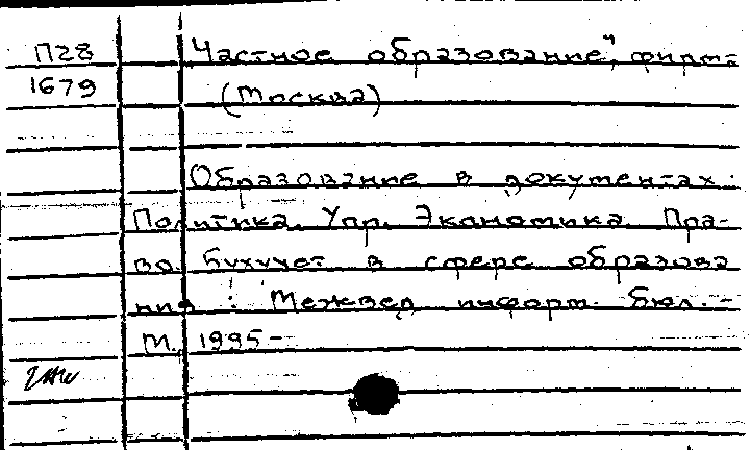 П28 Частное образование", фирма
1679 (Москва)
Образование в документах:
Политика. Упр. Экономика. Пра-
во. Бухучет в сфере образова
ния : Межвед. информ. бюл. -
М., 1995 -